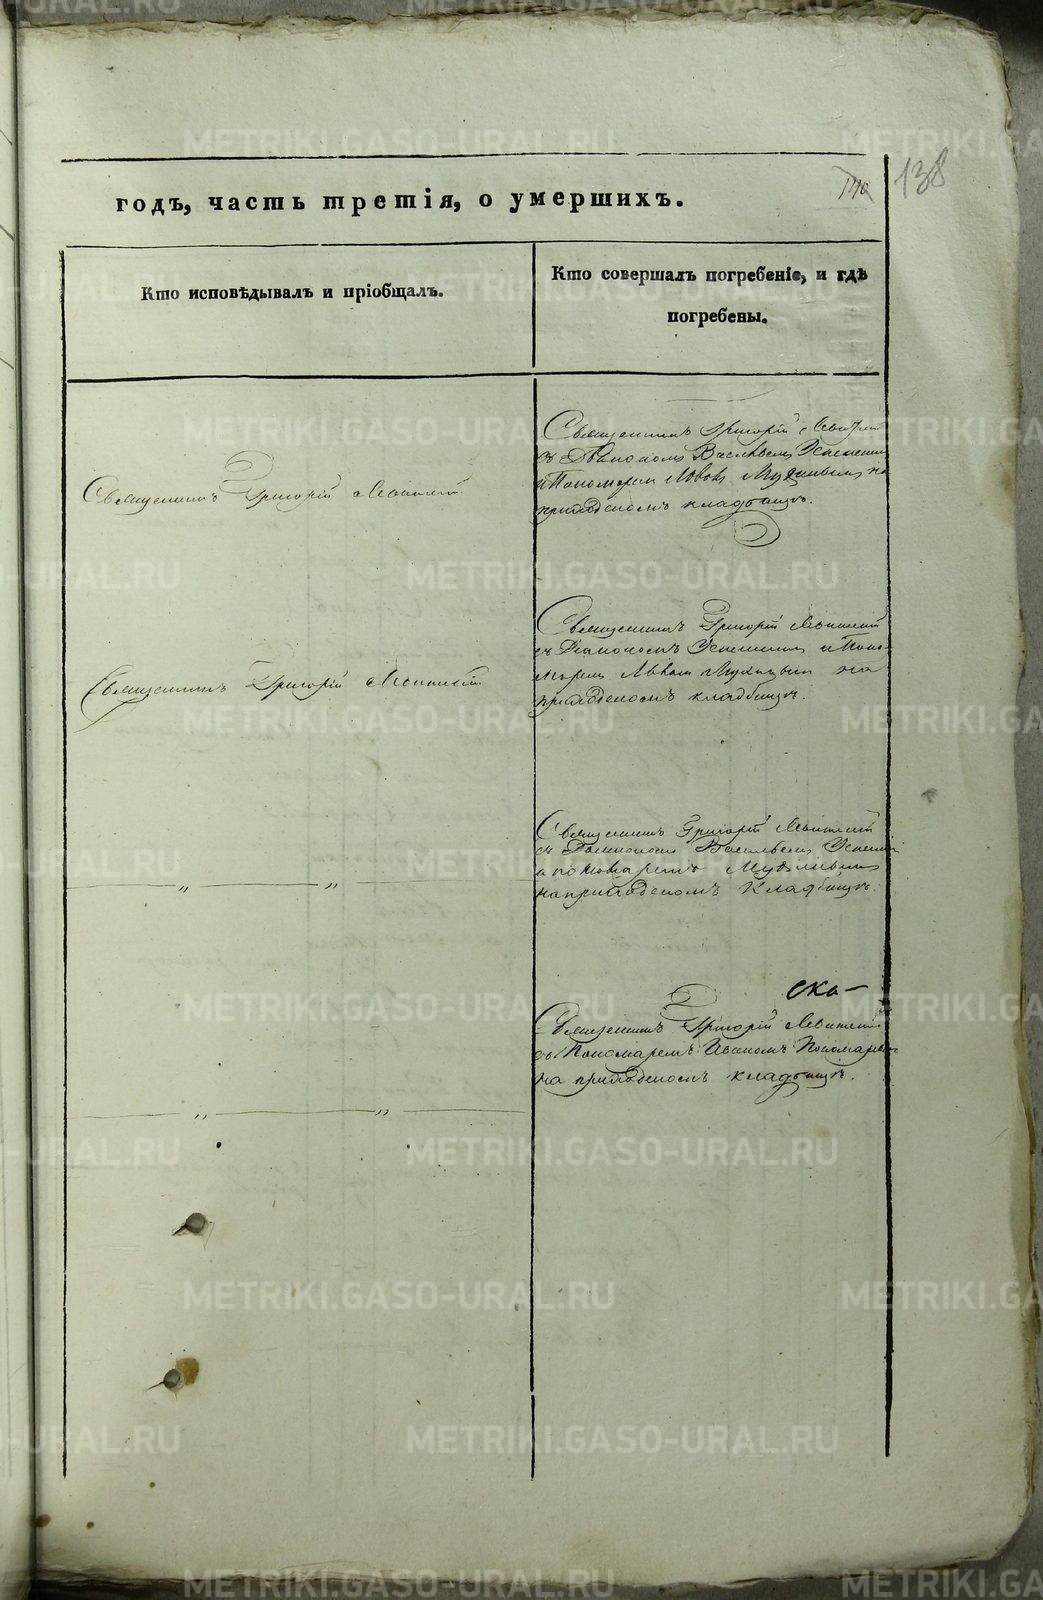 138
годъ, часть третія, о умершихъ.
Кто исповѣдывалъ и пріобщалъ.
Кто совершалъ погребеніе, и гдѣ
погребены.
Священникъ Григорій Левитскій
Священникъ Григорій Левитскій
съ Діакономъ Васильемъ Успенскимъ
и Пономаремъ Львомъ на
приходскомъ кладбищѣ.
Священникъ Григорій Левитскій
Священникъ Григорій Левитскій
съ Діакономъ Успенскимъ и Поно-
маремъ Львомъ на
приходскомъ кладбищѣ.
„ „
Священникъ Григорій Левитскій
съ Діакономъ Васильемъ Успенскимъ
и пономаремъ
на приходскомъ кладбищѣ.
„ „
ска-
Священникъ Григорій Левитскій
съ Пономаремъ Иваномъ
на приходскомъ кладбищѣ.
METRIKI.GASO-URAL.RU